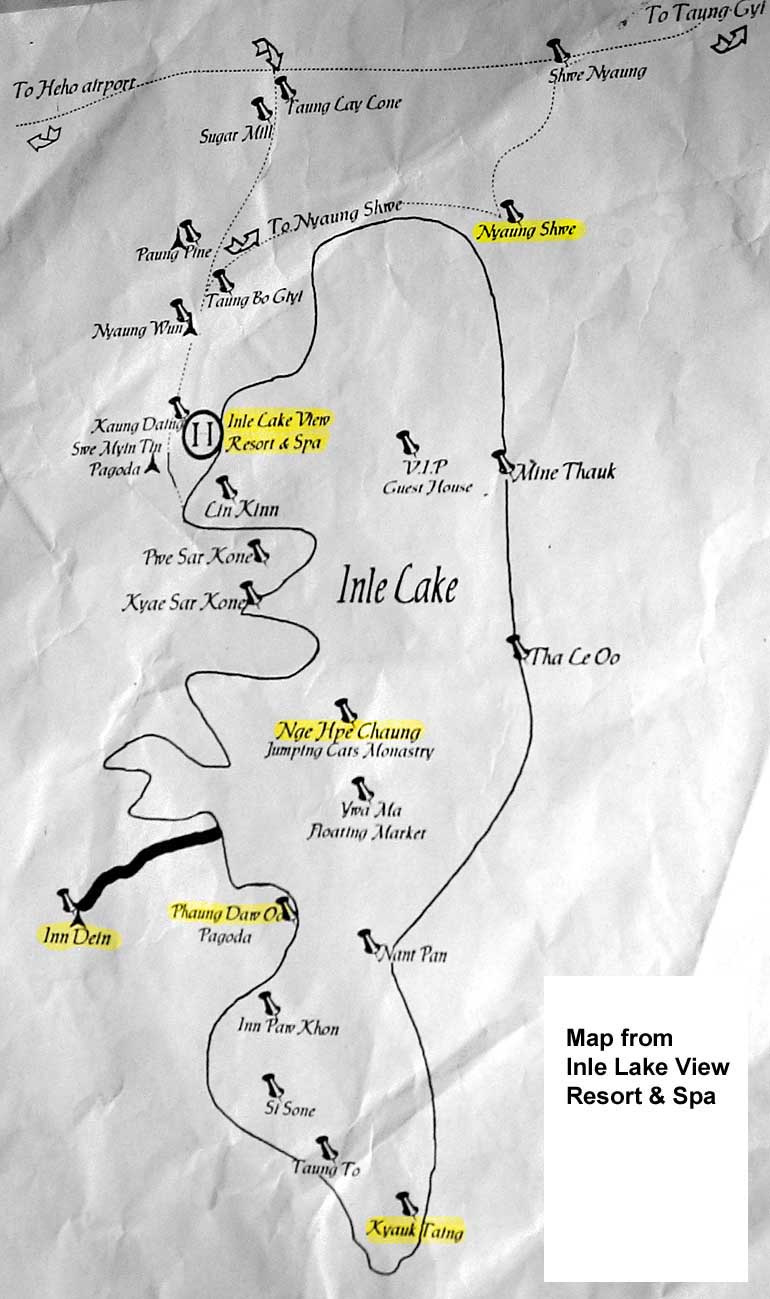 To Taung Gyi
To Heho airport
Shwe Nyaung
Taung Lay Lone
Sugar Mill
To Nyaung Shwe
Nyaung Shwe
Paung Pine
Taung Bo Gyi
Nyaung Wun
Kaung Daing
Swe Myin Tin
Pagoda
H
Inle Lake View
Resort & Spa
V.I.P
Guest House
Mine Thauk
Lin Kinn
Pwe Sar Kone
Inle Lake
Kyae Sar Kone
Tha Le Oo
Nge Hpe Chaung
Jumping Cats Monastry
Ywa Ma
Floating Market
Phaung Daw Oo
Pagoda
Inn Dein
Nant Pan
Inn Paw Khon
Map from
Inle Lake View
Resort & Spa
Si Sone
Taung To
Kyauk Taing